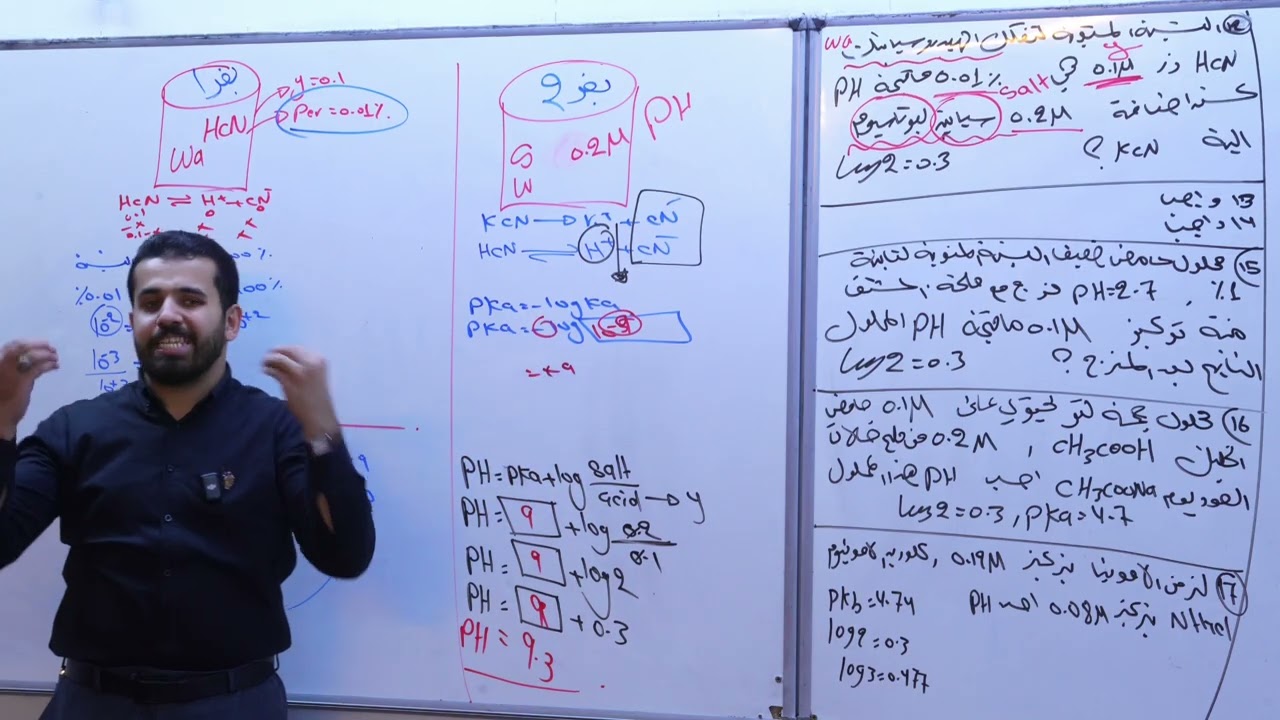 نفر 1
HCN
Wa
y=0.1
Per=0.01%
HCN ⇌ H⁺+CN⁻
0.1 0 0
-x x x
0.1-x x x
%0.01
10⁻²=
10⁻³
نفر 2
PH
S 0.2M
W
KCN → K⁺ + CN⁻
HCN ⇌ H⁺ + CN⁻
PKa=-logKa
PKa=-log 10⁻⁹
=+9
PH=PKa+log Salt/acid → y
PH= 9 +log 0.2/0.1
PH= 9 +log2
PH= 9 +0.3
PH= 9.3
النسبة المئوية لتفكك الهيدروسيانيك Wa
HCN في 0.1M y 0.01% ماقيمة PH
عند اضافة 0.2M salt سيانيد البوتاسيوم
KCN الية ؟ log2=0.3
13 واجب
14 واجب
15 محلول حامض ضعيف النسبة المئوية لتأينه
1% , PH=2.7 مزج مع ملحه المشتق
منه تركيز 0.1M ماقيمة PH المحلول
الناتج بعد المزج ؟ log2=0.3
16 محلول بحجم لتر يحتوي على 0.1M حامض
الخليك CH3COOH , 0.2M من ملح خلات
الصوديوم CH3COONa احسب PH هذا المحلول
log2=0.3, PKa=4.7
17 لتر من الامونيا بتركيز 0.19M , كلوريد الامونيوم
NH4Cl بتركيز 0.08M احسب PH
PKb=4.74
log2=0.3
log3=0.477